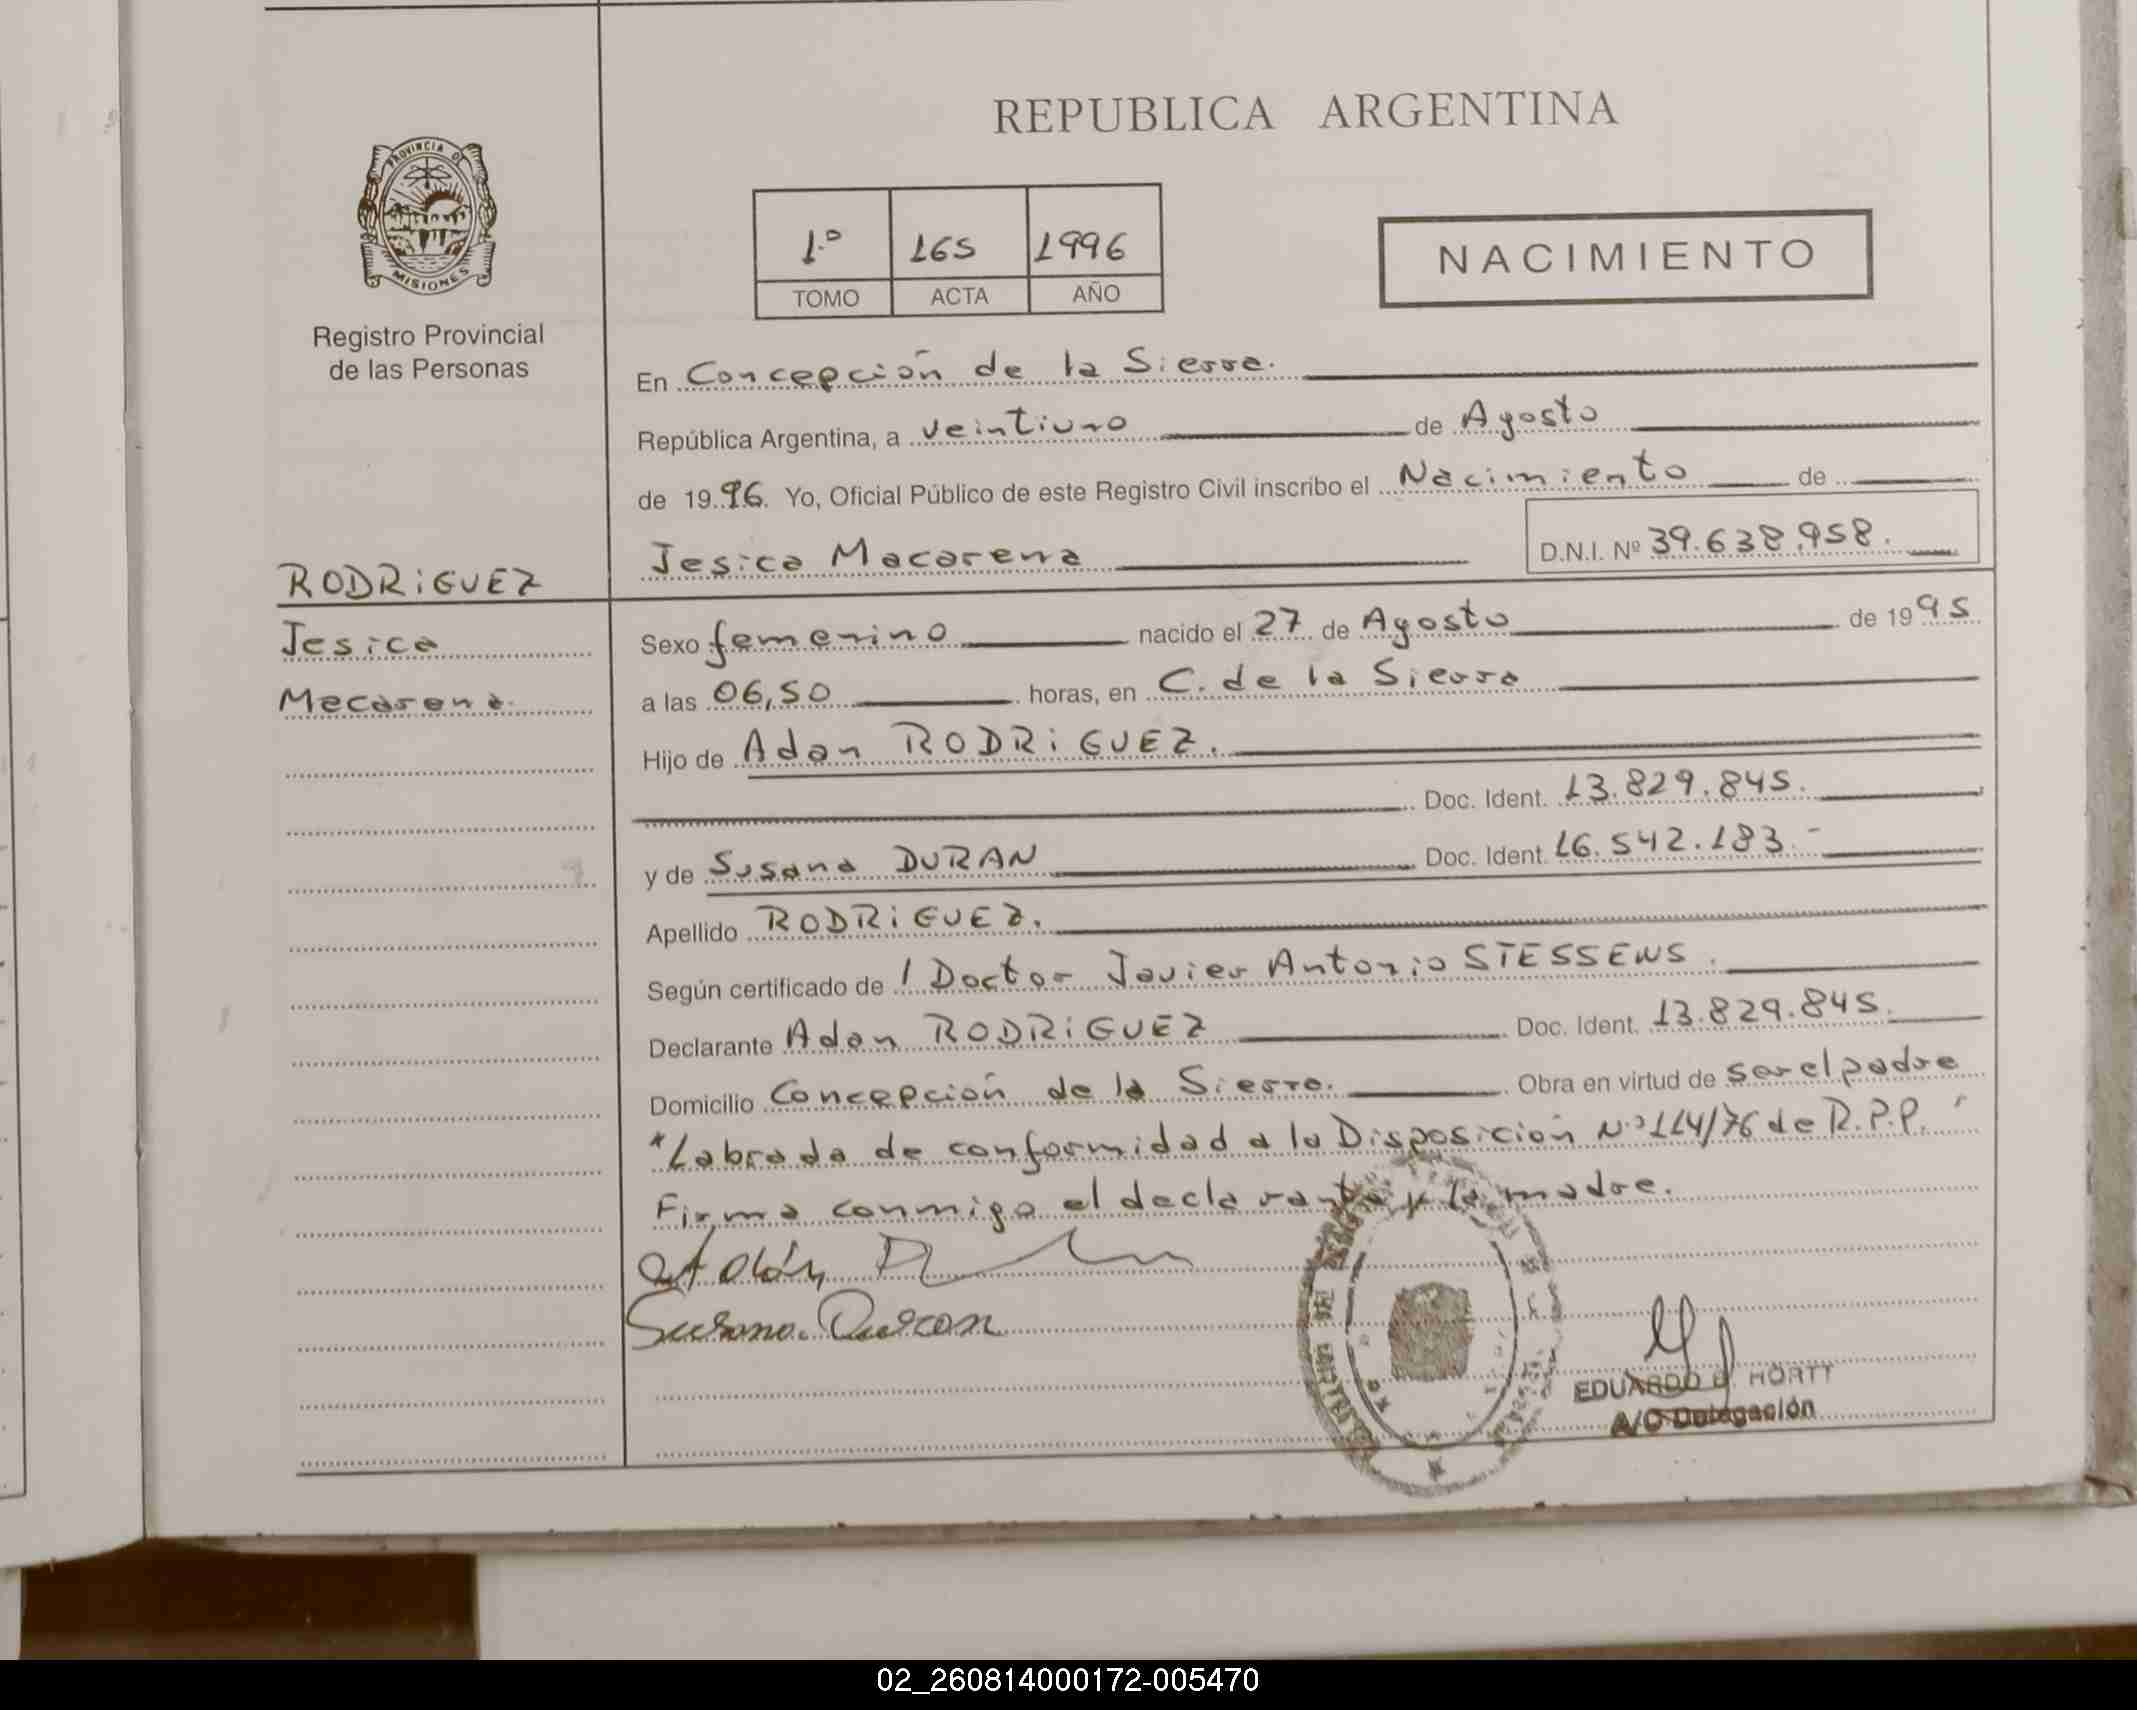 REPUBLICA ARGENTINA
PROVINCIA DE
MISIONES
Registro Provincial
de las Personas
1º 165 1996
TOMO ACTA AÑO
NACIMIENTO
En Concepción de la Sierra.
República Argentina, a veintiuno de Agosto
de 1996. Yo, Oficial Público de este Registro Civil inscribo el Nacimiento de
Jesica Macarena
D.N.I. Nº 39.638.958.
RODRiGUEZ
Jesica
Macarena.
Sexo femenino nacido el 27 de Agosto de 1995
a las 06,50 horas, en C. de la Sierra
Hijo de Adan RODRiGUEZ.
Doc. Ident. 13.829.845.
y de Susana DURAN Doc. Ident. 16.542.183.-
Apellido RODRiGUEZ.
Según certificado de / Doctor Javier Antonio STESSENS.
Declarante Adan RODRiGUEZ Doc. Ident. 13.829.845.
Domicilio Concepción de la Sierra. Obra en virtud de ser el padre
*Labrada de conformidad a la Disposición Nº 114/76 de R.P.P.
Firma conmigo el declarante y la madre.
Adán
Susana Duran
EDUARDO HORTT
A/C Delegación
02_260814000172-005470